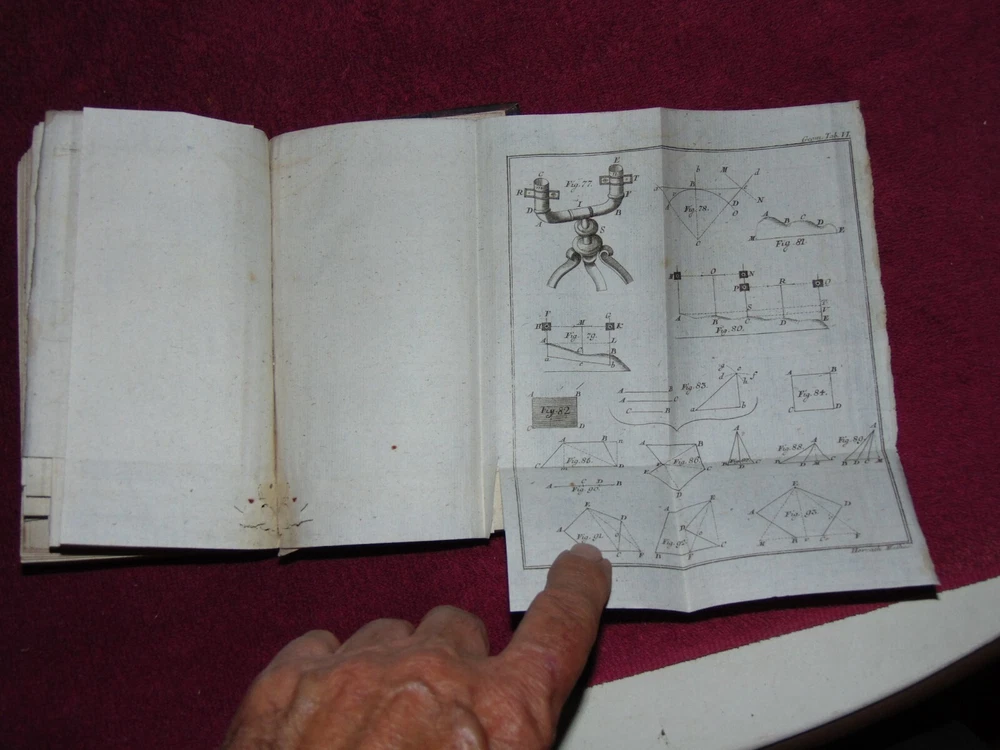 Geom. Tab. VI.
E
C
Fig. 77.
R
T
D
I
V
A
B
S
b
M
d
B
Fig. 78.
D
N
O
C
A
B
C
D
M
E
Fig. 81.
O
N
P
R
Q
S
A
B
C
D
E
Fig. 80.
F
G
H
M
K
Fig. 79.
A
L
C
B
a
c
b
A
B
Fig. 82.
C
D
A
B
A
C
C
B
Fig. 83.
g
e
d
f
h
a
b
A
B
Fig. 84.
C
D
A
B
Fig. 85.
C
D
A
B
Fig. 86.
E
C
D
A
B
D
C
Fig. 88.
A
Fig. 89.
A
B
D
C
M
A
C
D
B
Fig. 90.
E
D
A
Fig. 91.
C
F
A
E
D
Fig. 92.
B
F
C
E
D
A
Fig. 93.
M
B
C
F